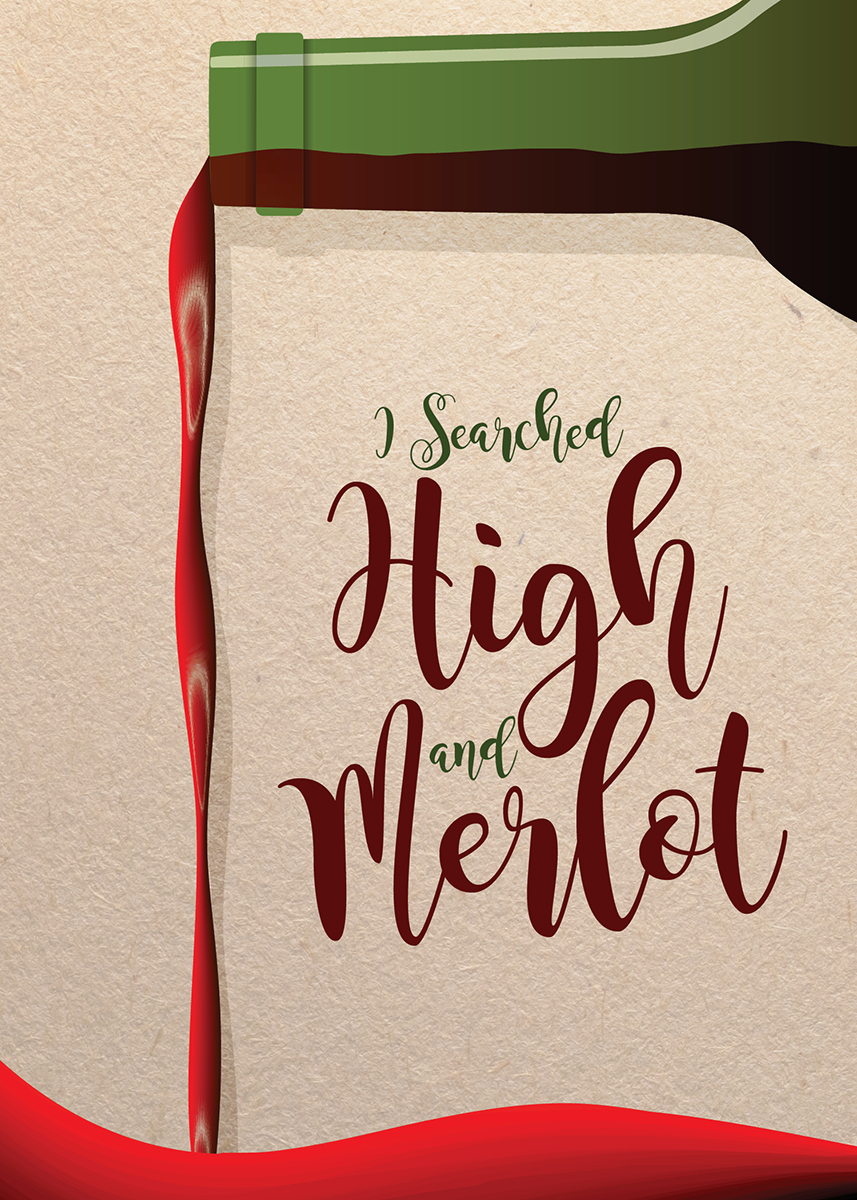 I Searched
High
and
Merlot